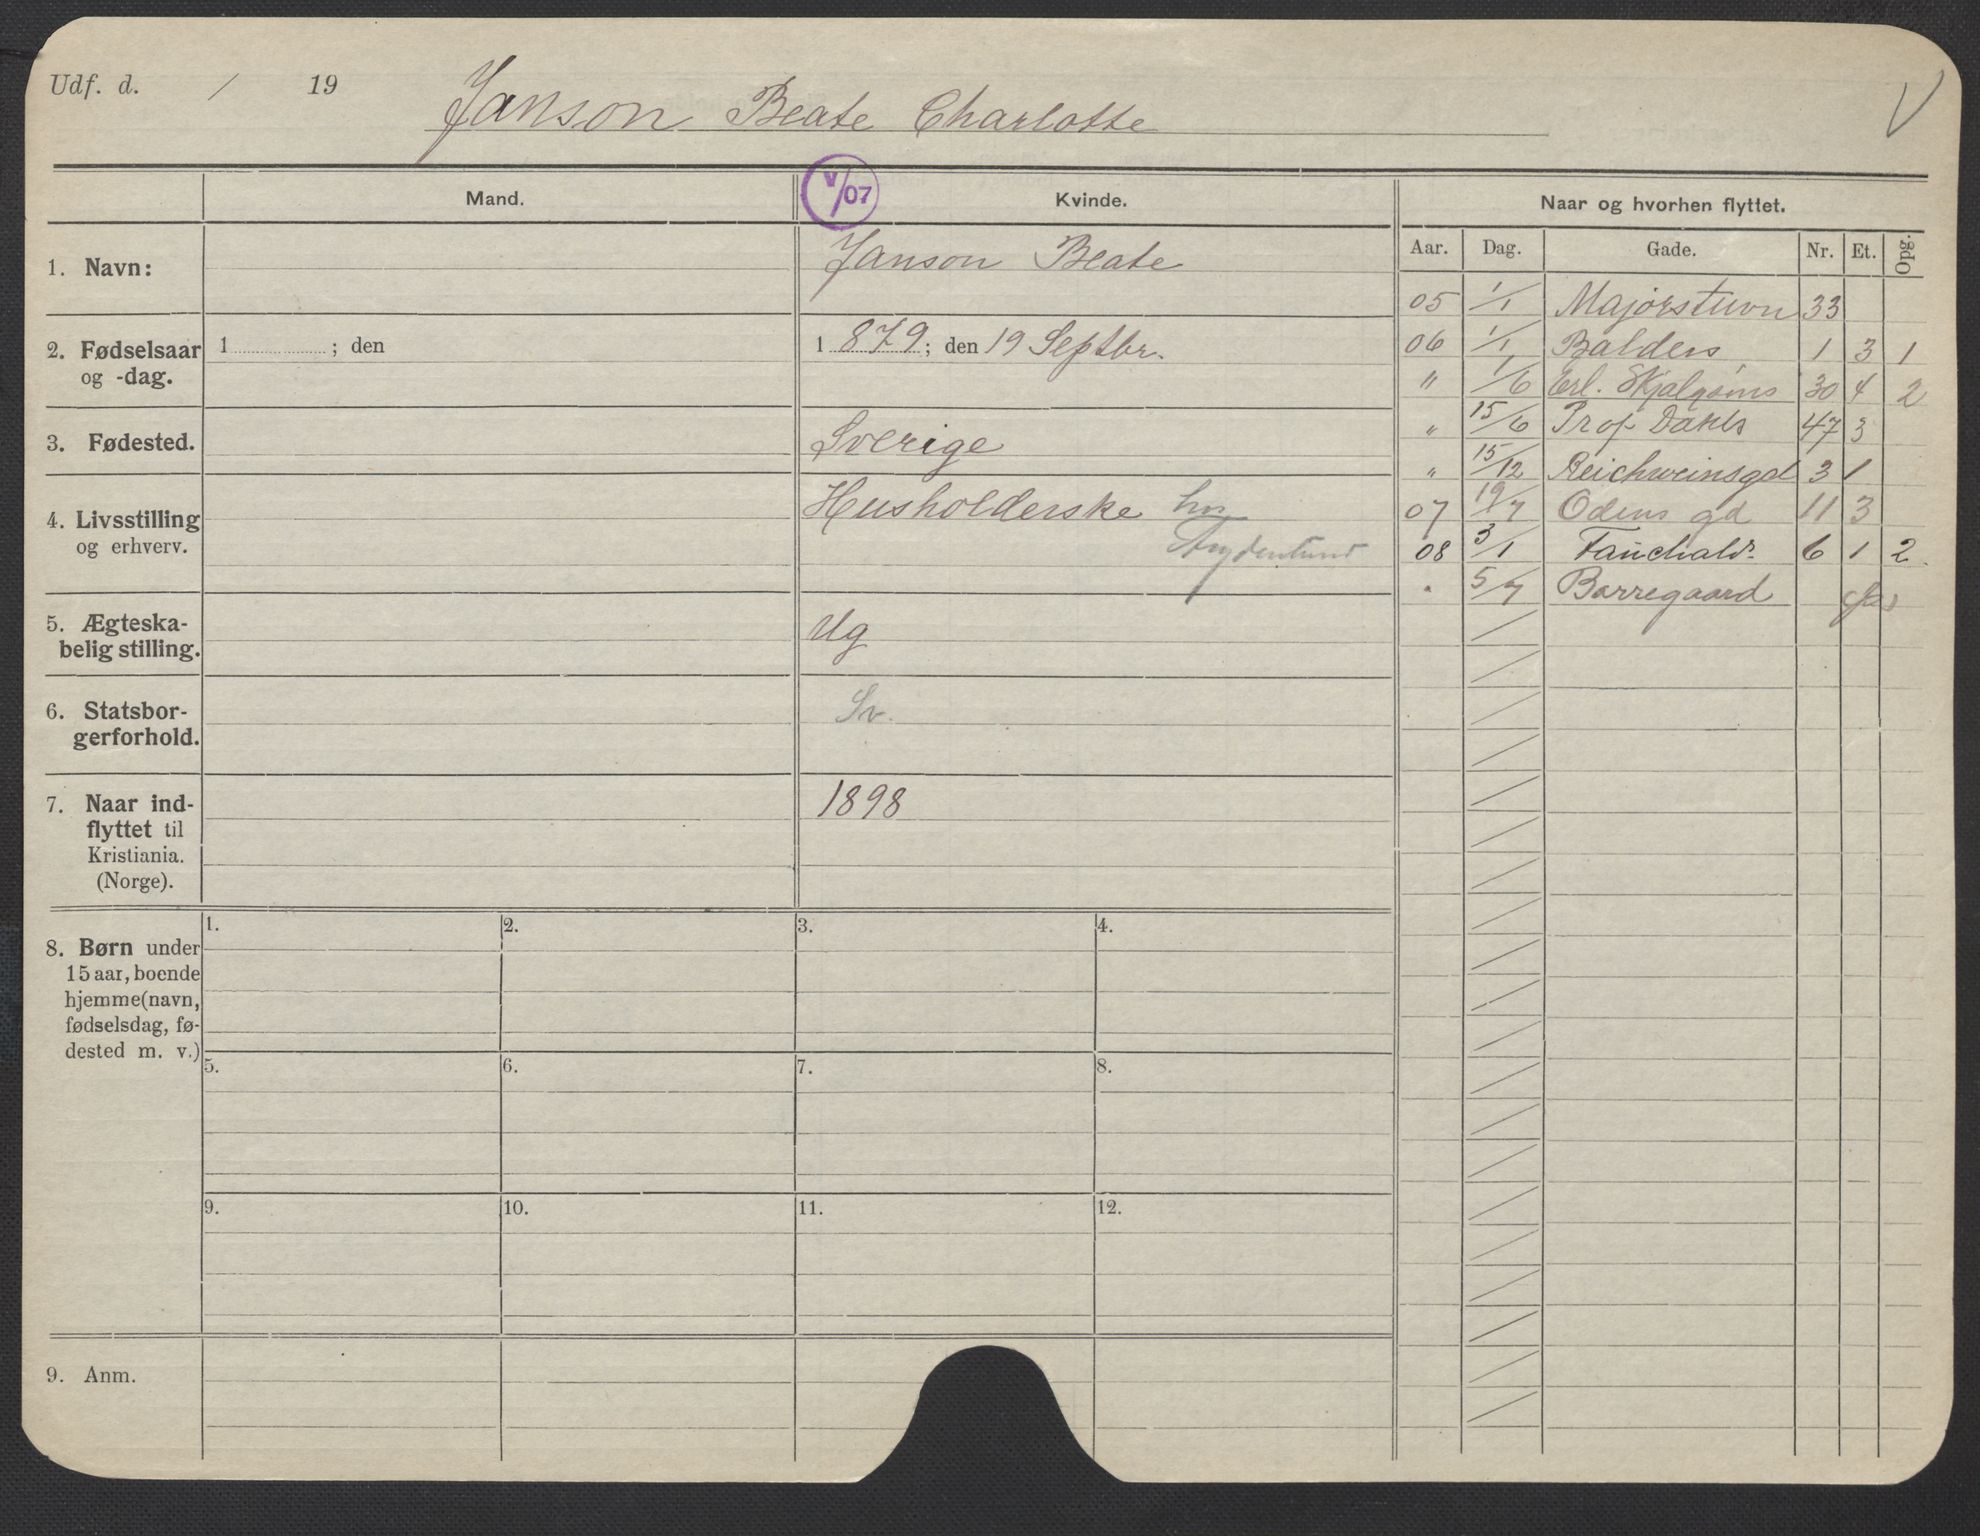 Udf. d. / 19 Janson Beate Charlotte V
Mand. V/07 Kvinde. Naar og hvorhen flyttet.
Aar. Dag. Gade. Nr. Et. Opg.
1. Navn: Janson Beate
2. Fødselsaar og -dag. 1 ; den 1879; den 19 Septbr.
3. Fødested. Sverige
4. Livsstilling og erhverv. Husholderske hos
5. Ægteska-
belig stilling. Ug
6. Statsbor-
gerforhold. Sv.
7. Naar ind-
flyttet til
Kristiania.
(Norge). 1898
05 1/1 Majorstuvn 33
06 1/1 Balders 1 3 1
" 1/6 Erl. Skjalgsøns 30 4 2
" 15/6 Prof Dahls 47 3
" 15/12 Reichweinsgd 3 1
07 19/7 Odens gd 11 3
08 3/1 Fauchalds 6 1 2
" 5/7 Borregaard
8. Børn under
15 aar, boende
hjemme (navn,
fødselsdag, fø-
dested m. v.)
1. 2. 3. 4.
5. 6. 7. 8.
9. 10. 11. 12.
9. Anm.